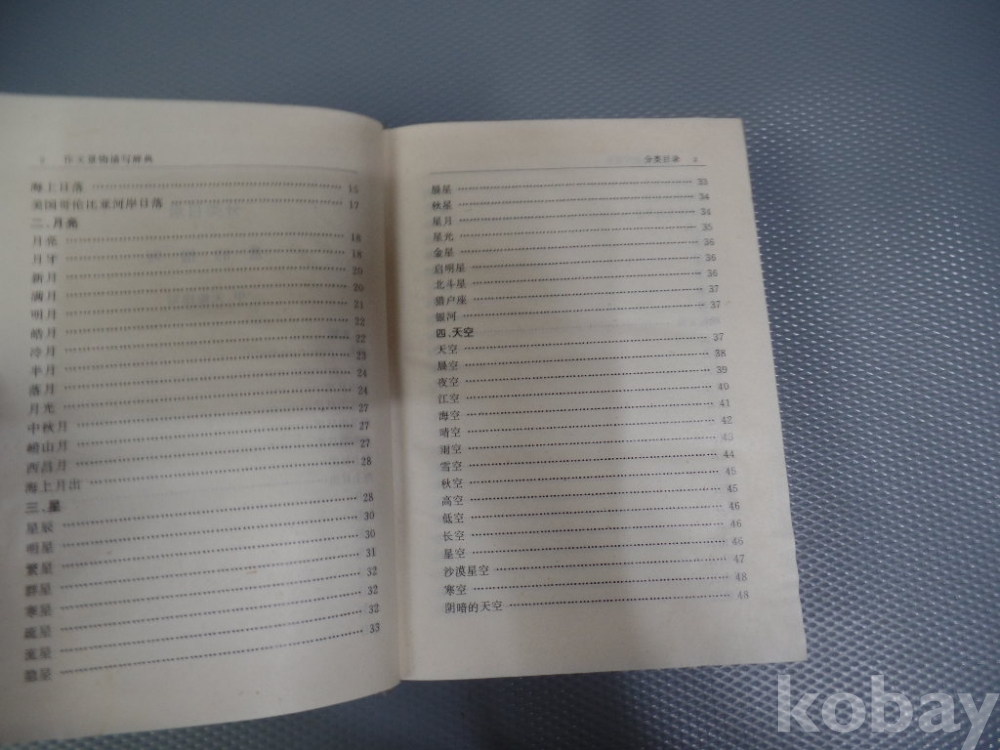 2 作文景物描写辞典
海上日落 ………… 15
美国哥伦比亚河岸日落 ………… 17
二.月亮
月亮 ………… 18
月牙 ………… 18
新月 ………… 20
满月 ………… 20
明月 ………… 21
皓月 ………… 22
冷月 ………… 22
半月 ………… 23
落月 ………… 24
月光 ………… 24
中秋月 ………… 27
崂山月 ………… 27
西昌月 ………… 27
海上月出 ………… 28
三.星
星辰 ………… 28
明星 ………… 30
繁星 ………… 30
群星 ………… 31
寒星 ………… 32
疏星 ………… 32
流星 ………… 32
隐星 ………… 33
分类目录 3
晨星 ………… 33
秋星 ………… 34
星月 ………… 34
星光 ………… 35
金星 ………… 36
启明星 ………… 36
北斗星 ………… 36
猎户座 ………… 37
银河 ………… 37
四.天空
天空 ………… 37
晨空 ………… 38
夜空 ………… 39
江空 ………… 40
海空 ………… 41
晴空 ………… 42
雨空 ………… 43
雪空 ………… 44
秋空 ………… 45
高空 ………… 45
低空 ………… 46
长空 ………… 46
星空 ………… 46
沙漠星空 ………… 47
寒空 ………… 48
阴暗的天空 ………… 48
kobay